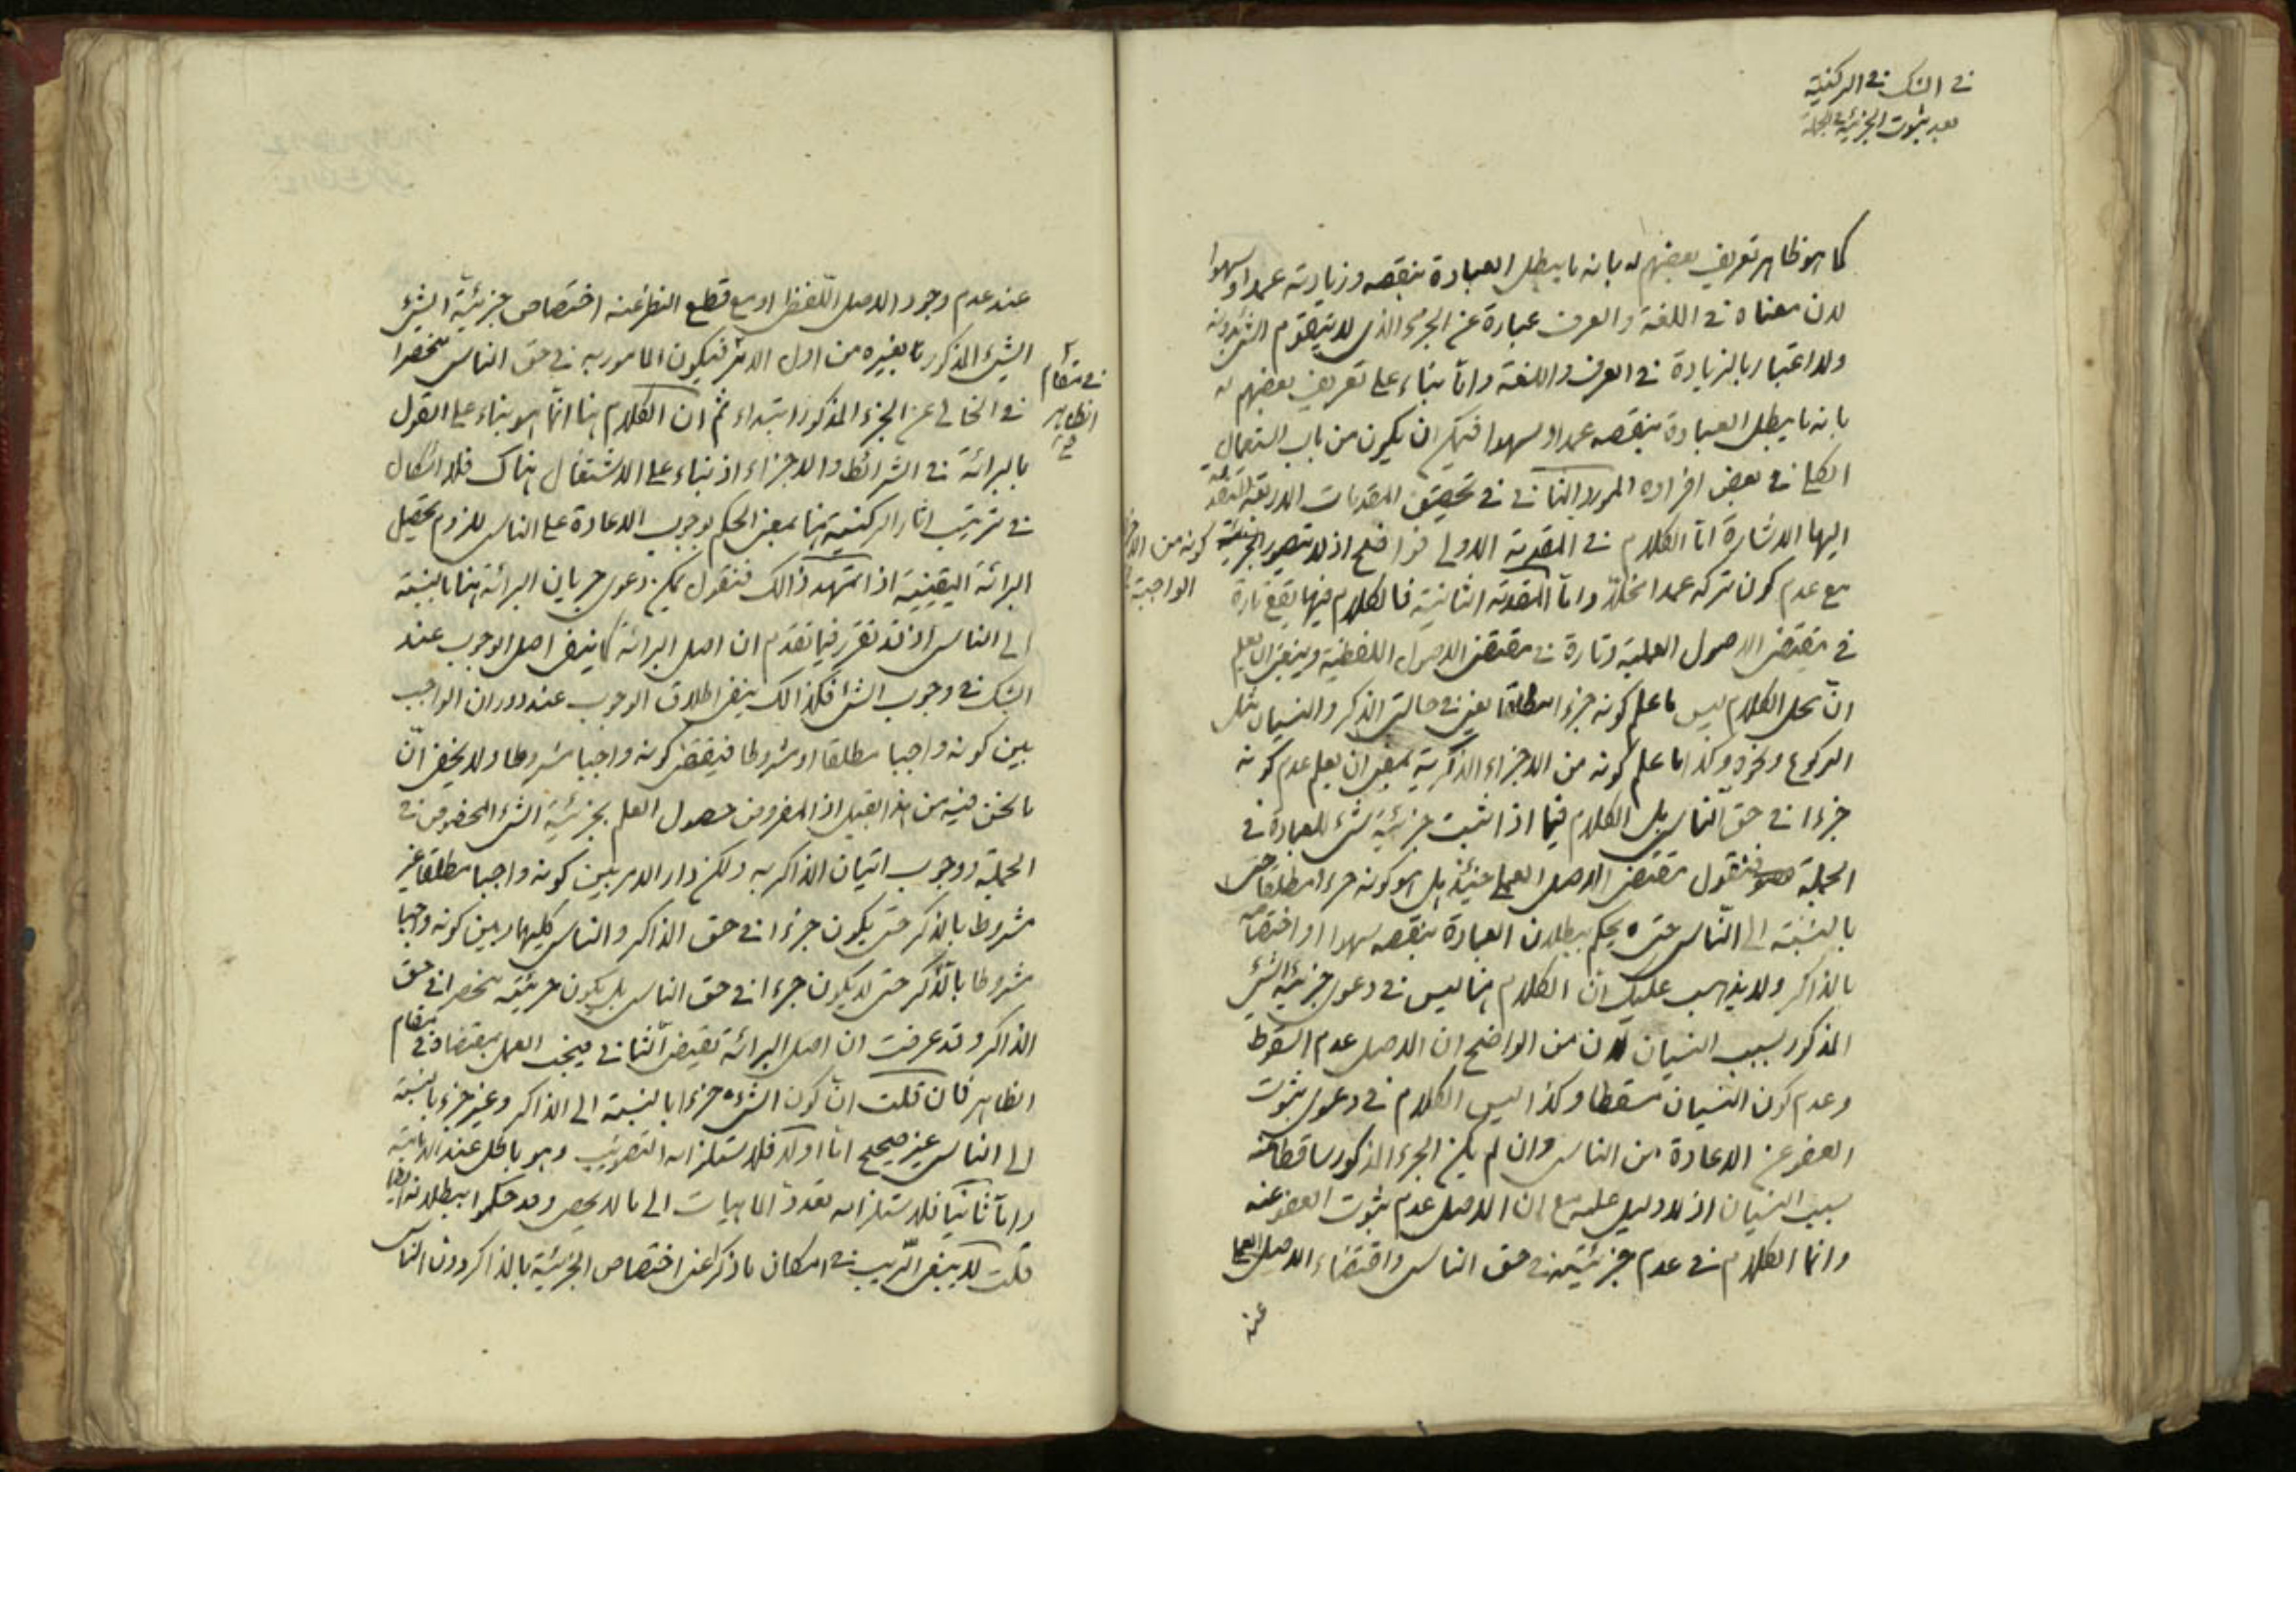 في الشك في الركنية
بعد ثبوت الجزئية في الجملة
كما هو ظاهر تعريف بعضهم له بانه ما يبطل العبادة بنقصه وزيادته عمدا وسهوا
لان معناه في اللغة والعرف عبارة عن الجزء الذي لا يتقوم الشئ بدونه
ولا اعتبار بالزيادة في العرف واللغة واما بناء على تعريف بعضهم له
بانه ما يبطل العبادة بنقصه عمدا وسهوا فيمكن ان يكون من باب استعمال
الكلي في بعض افراده المورد الثاني في تحقيق المقدمات الاربعة المتقدمة
اليها الاشارة اما الكلام في المقدمة الاولى فواضح اذ لا يتصور الجزئية
كونه من الاجزاء
الواجبة
مع عدم كون تركه عمدا مخلا واما المقدمة الثانية فالكلام فيها يقع تارة
في مقتضى الاصول العملية وتارة في مقتضى الاصول اللفظية وينبغي ان يعلم
ان محل الكلام ليس ما علم كونه جزءا مطلقا يعني في حالتي الذكر والنسيان مثل
الركوع ونحوه وكذا ما علم كونه من الاجزاء الذكرية بمعنى ان يعلم عدم كونه
جزءا في حق الناسي بل الكلام فيما اذا ثبت جزئية شئ للعبادة في
الجملة فنقول مقتضى الاصل العملي حينئذ هل هو كونه جزءا مطلقا حتى
بالنسبة الى الناسي حتى يحكم ببطلان العبادة بنقصه سهوا او اختصاصه
بالذاكر ولا يذهب عليك ان الكلام هنا ليس في دعوى جزئية الشئ
المذكور بسبب النسيان لان من الواضح ان الاصل عدم السقوط
وعدم كون النسيان مسقطا وكذا ليس الكلام في دعوى ثبوت
العفو عن الاعادة من الناسي وان لم يكن الجزء المذكور ساقطا عنه
بسبب النسيان اذ لا دليل عليه مع ان الاصل عدم ثبوت العفو عنه
وانما الكلام في عدم جزئيته في حق الناسي واقتضاء الاصل العملي
عند
عند عدم وجود الاصل اللفظي او مع قطع النظر عنه اختصاص جزئية الشئ
الشئ المذكور بغيره من اول الامر فيكون المامور به في حق الناسي منحصرا
في مقام
الظاهر
في الخالي عن الجزء المذكور ابتداء ثم ان الكلام هنا انما هو بناء على القول
بالبرائة في الشرائط والاجزاء اذ بناء على الاشتغال هناك فلا اشكال
في ترتيب اثار الركنية هنا بمعنى الحكم بوجوب الاعادة على الناسي للزوم تحصيل
البرائة اليقينية اذا تمهد ذالك فنقول يمكن دعوى جريان البرائة هنا بالنسبة
الى الناسي اذ قد تقرر فيما تقدم ان اصل البرائة كما ينفى اصل الوجوب عند
الشك في وجوب الشئ فكذالك ينفى اطلاق الوجوب عند دوران الواجب
بين كونه واجبا مطلقا او مشروطا فيقتضى كونه واجبا مشروطا ولا يخفى ان
ما نحن فيه من هذا القبيل اذ المفروض حصول العلم بجزئية الشئ المخصوص في
الجملة ووجوب اتيان الذاكر به ولكن دار الامر بين كونه واجبا مطلقا غير
مشروط بالذكر حتى يكون جزءا في حق الذاكر والناسي كليهما وبين كونه واجبا
مشروطا بالذكر حتى لا يكون جزءا في حق الناسي بل يكون جزئيته منحصرا في حق
الذاكر وقد عرفت ان اصل البرائة تقتضى الثاني فيجب العمل بمقتضاه في مقام
الظاهر فان قلت ان كون الشئ جزءا بالنسبة الى الذاكر وغير جزء بالنسبة
الى الناسي غير صحيح اما اولا فلاستلزامه التصويب وهو باطل عند الامامية
واما ثانيا فلاستلزامه تعدد الماهيات الى ما لا يحصى وقد حكموا ببطلانه ايضا
قلت لا ينبغى الريب في امكان ما ذكر اعنى اختصاص الجزئية بالذاكر دون الناسي